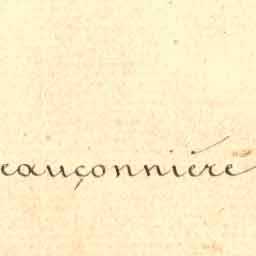 eauçonniére